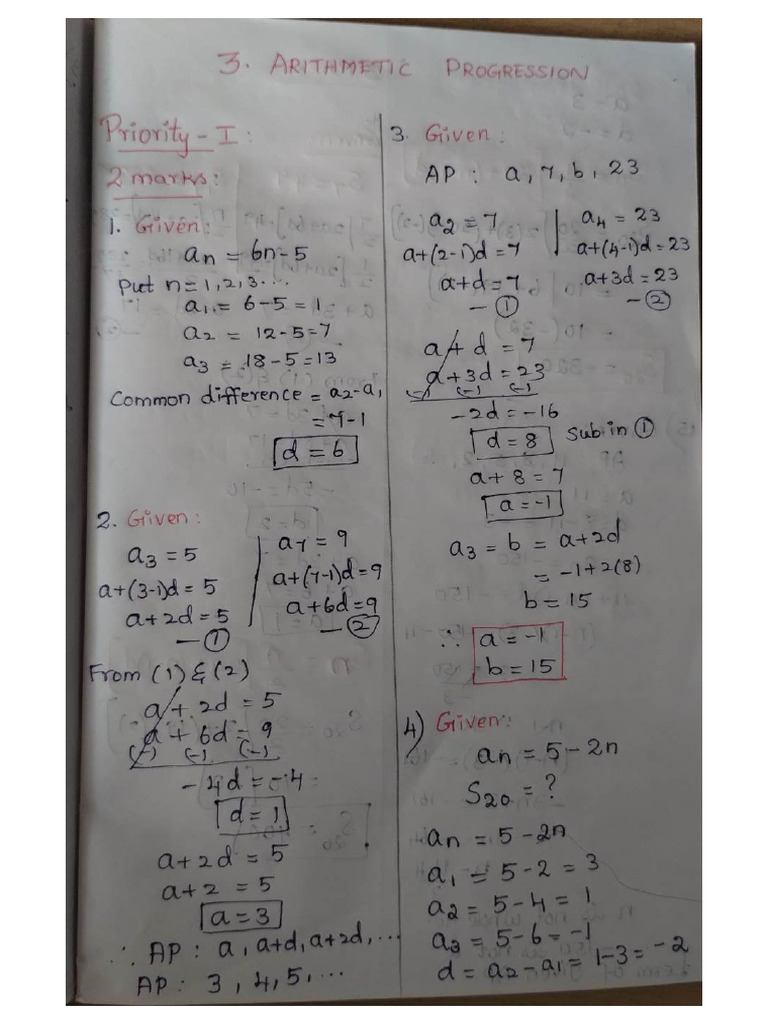 3. ARITHMETIC PROGRESSION
Priority - I :
2 marks :
1. Given :
an = 6n-5
put n = 1, 2, 3 ...
a1 = 6-5 = 1
a2 = 12-5 = 7
a3 = 18-5 = 13
Common difference = a2-a1
= 7-1
d = 6
2. Given :
a3 = 5
a+(3-1)d = 5
a+2d = 5
— ①
a7 = 9
a+(7-1)d = 9
a+6d = 9
— ②
From (1) & (2)
a + 2d = 5
a + 6d = 9
(-) (-) (-)
- 4d = -4
d = 1
a + 2d = 5
a + 2 = 5
a = 3
∴ AP : a, a+d, a+2d, ...
AP : 3, 4, 5, ...
3. Given :
AP : a, 7, b, 23
a2 = 7
a+(2-1)d = 7
a+d = 7
— ①
a4 = 23
a+(4-1)d = 23
a+3d = 23
— ②
a + d = 7
a + 3d = 23
(-) (-) (-)
-2d = -16
d = 8 Sub in ①
a + 8 = 7
a = -1
a3 = b = a+2d
= -1+2(8)
b = 15
∴ a = -1
b = 15
4) Given :
an = 5 - 2n
S20 = ?
an = 5 - 2n
a1 = 5 - 2 = 3
a2 = 5 - 4 = 1
a3 = 5 - 6 = -1
d = a2 - a1 = 1-3 = -2